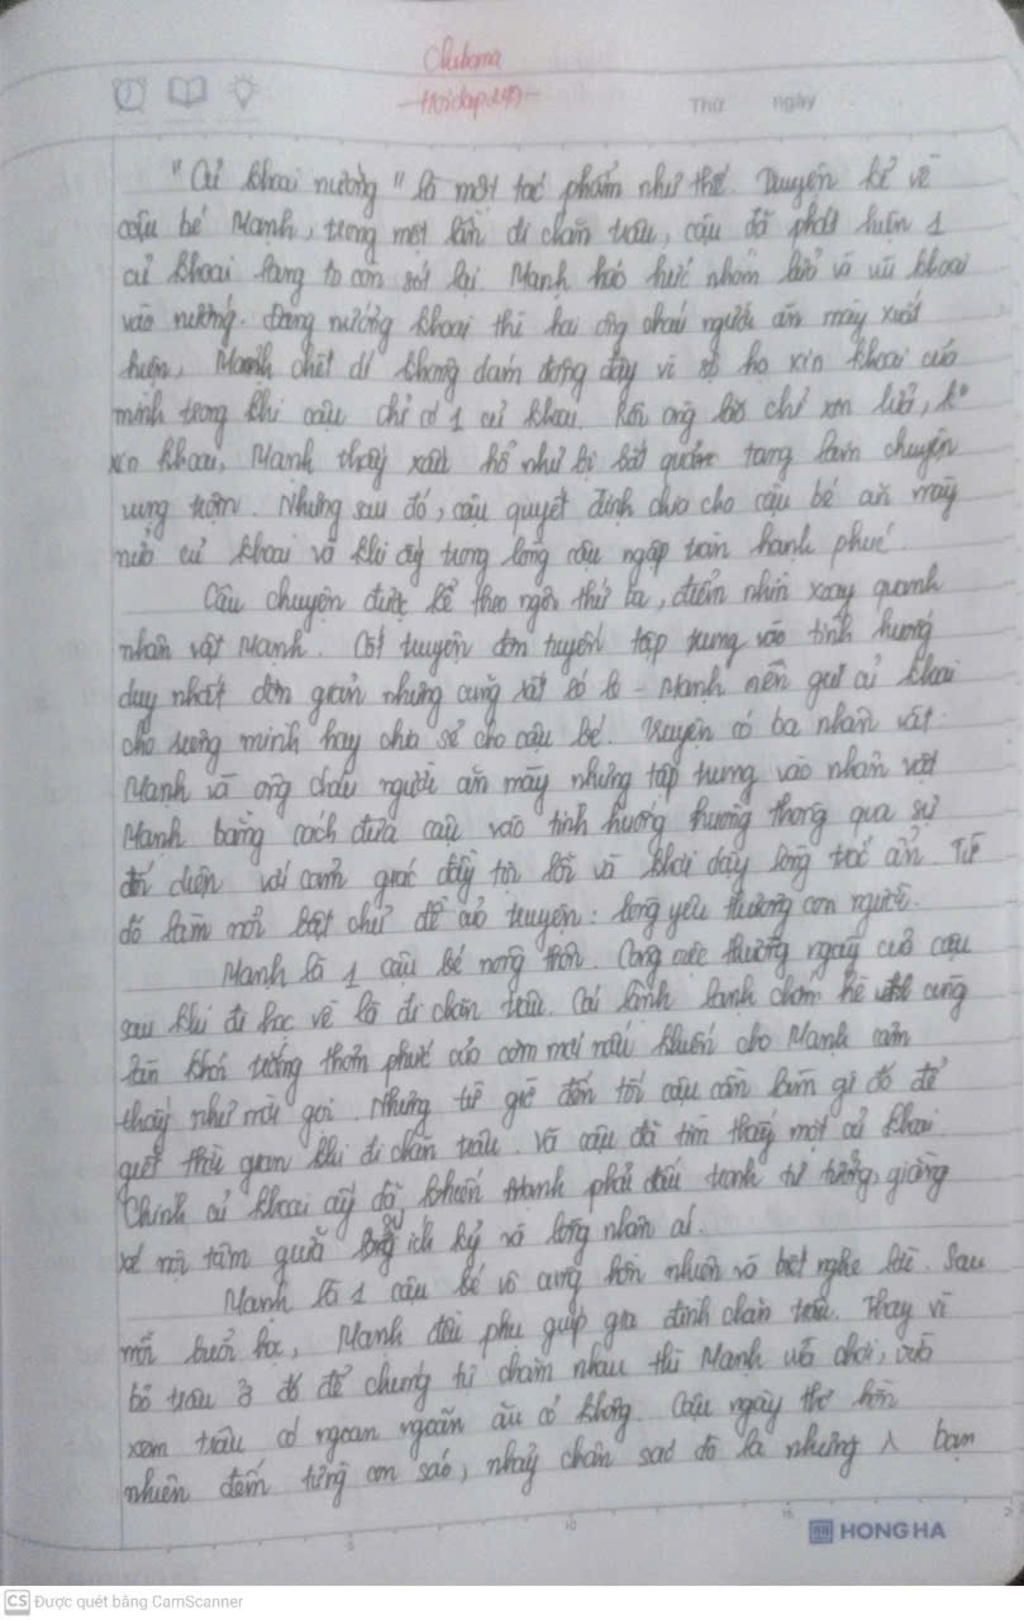 Thứ ngày
"Củ khoai nướng" là một tác phẩm như thế. Truyện kể về
cậu bé Mạnh, trong một lần đi chăn trâu, cậu đã phát hiện 1
củ khoai lang to còn sót lại. Mạnh háo hức nhóm lửa và vùi khoai
vào nướng. Đang nướng khoai thì hai ông cháu người ăn mày xuất
hiện, Mạnh chết dí không dám đứng dậy vì sợ họ xin khoai của
mình trong khi cậu chỉ có 1 củ khoai. Khi ông lão chỉ xin lửa, ko
xin khoai, Mạnh thấy xấu hổ như bị bắt quả tang làm chuyện
vụng trộm. Nhưng sau đó, cậu quyết định chia cho cậu bé ăn mày
nửa củ khoai và khi ấy trong lòng cậu ngập tràn hạnh phúc.
Câu chuyện được kể theo ngôi thứ ba, điểm nhìn xoay quanh
nhân vật Mạnh. Cốt truyện đơn tuyến tập trung vào tình huống
duy nhất đơn giản nhưng cũng rất - Mạnh nên giữ củ khoai
cho riêng mình hay chia sẻ cho cậu bé. Truyện có ba nhân vật
Mạnh và ông cháu người ăn mày nhưng tập trung vào nhân vật
Mạnh bằng cách đưa cậu vào tình huống thông qua sự
đối diện với cảm giác đầy tội lỗi và khơi dậy lòng trắc ẩn. Từ
đó làm nổi bật chủ đề của truyện: lòng yêu thương con người.
Mạnh là 1 cậu bé nông thôn. Công việc thường ngày của cậu
sau khi đi học về là đi chăn trâu. Cái lành lạnh chớm hè cùng
làn khói tưởng thơm phức của cơm mới nấu khiến cho Mạnh cảm
thấy như mời gọi. Nhưng từ giờ đến tối cậu cần làm gì đó để
giết thời gian khi đi chăn trâu. Và cậu đã tìm thấy một củ khoai.
Chính củ khoai ấy đã khiến Mạnh phải đấu tranh tư tưởng, giằng
xé nội tâm giữa sự ích kỷ và lòng nhân ái.
Mạnh là 1 cậu bé vô cùng hồn nhiên và biết nghe lời. Sau
mỗi buổi học, Mạnh đều phụ giúp gia đình chăn trâu. Thay vì
bỏ trâu ở đó để chúng tự chăm nhau thì Mạnh vừa chơi, vừa
xem trâu có ngoan ngoãn ăn cỏ không. Cậu ngây thơ hồn
nhiên đếm từng con sáo, nhảy chân sáo đó là những bạn
HONG HA
CS Được quét bằng CamScanner